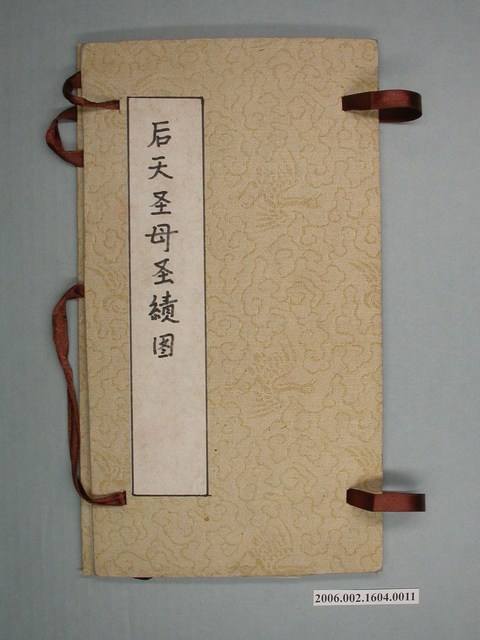 后天圣母圣績图
2006.002.1604.0011